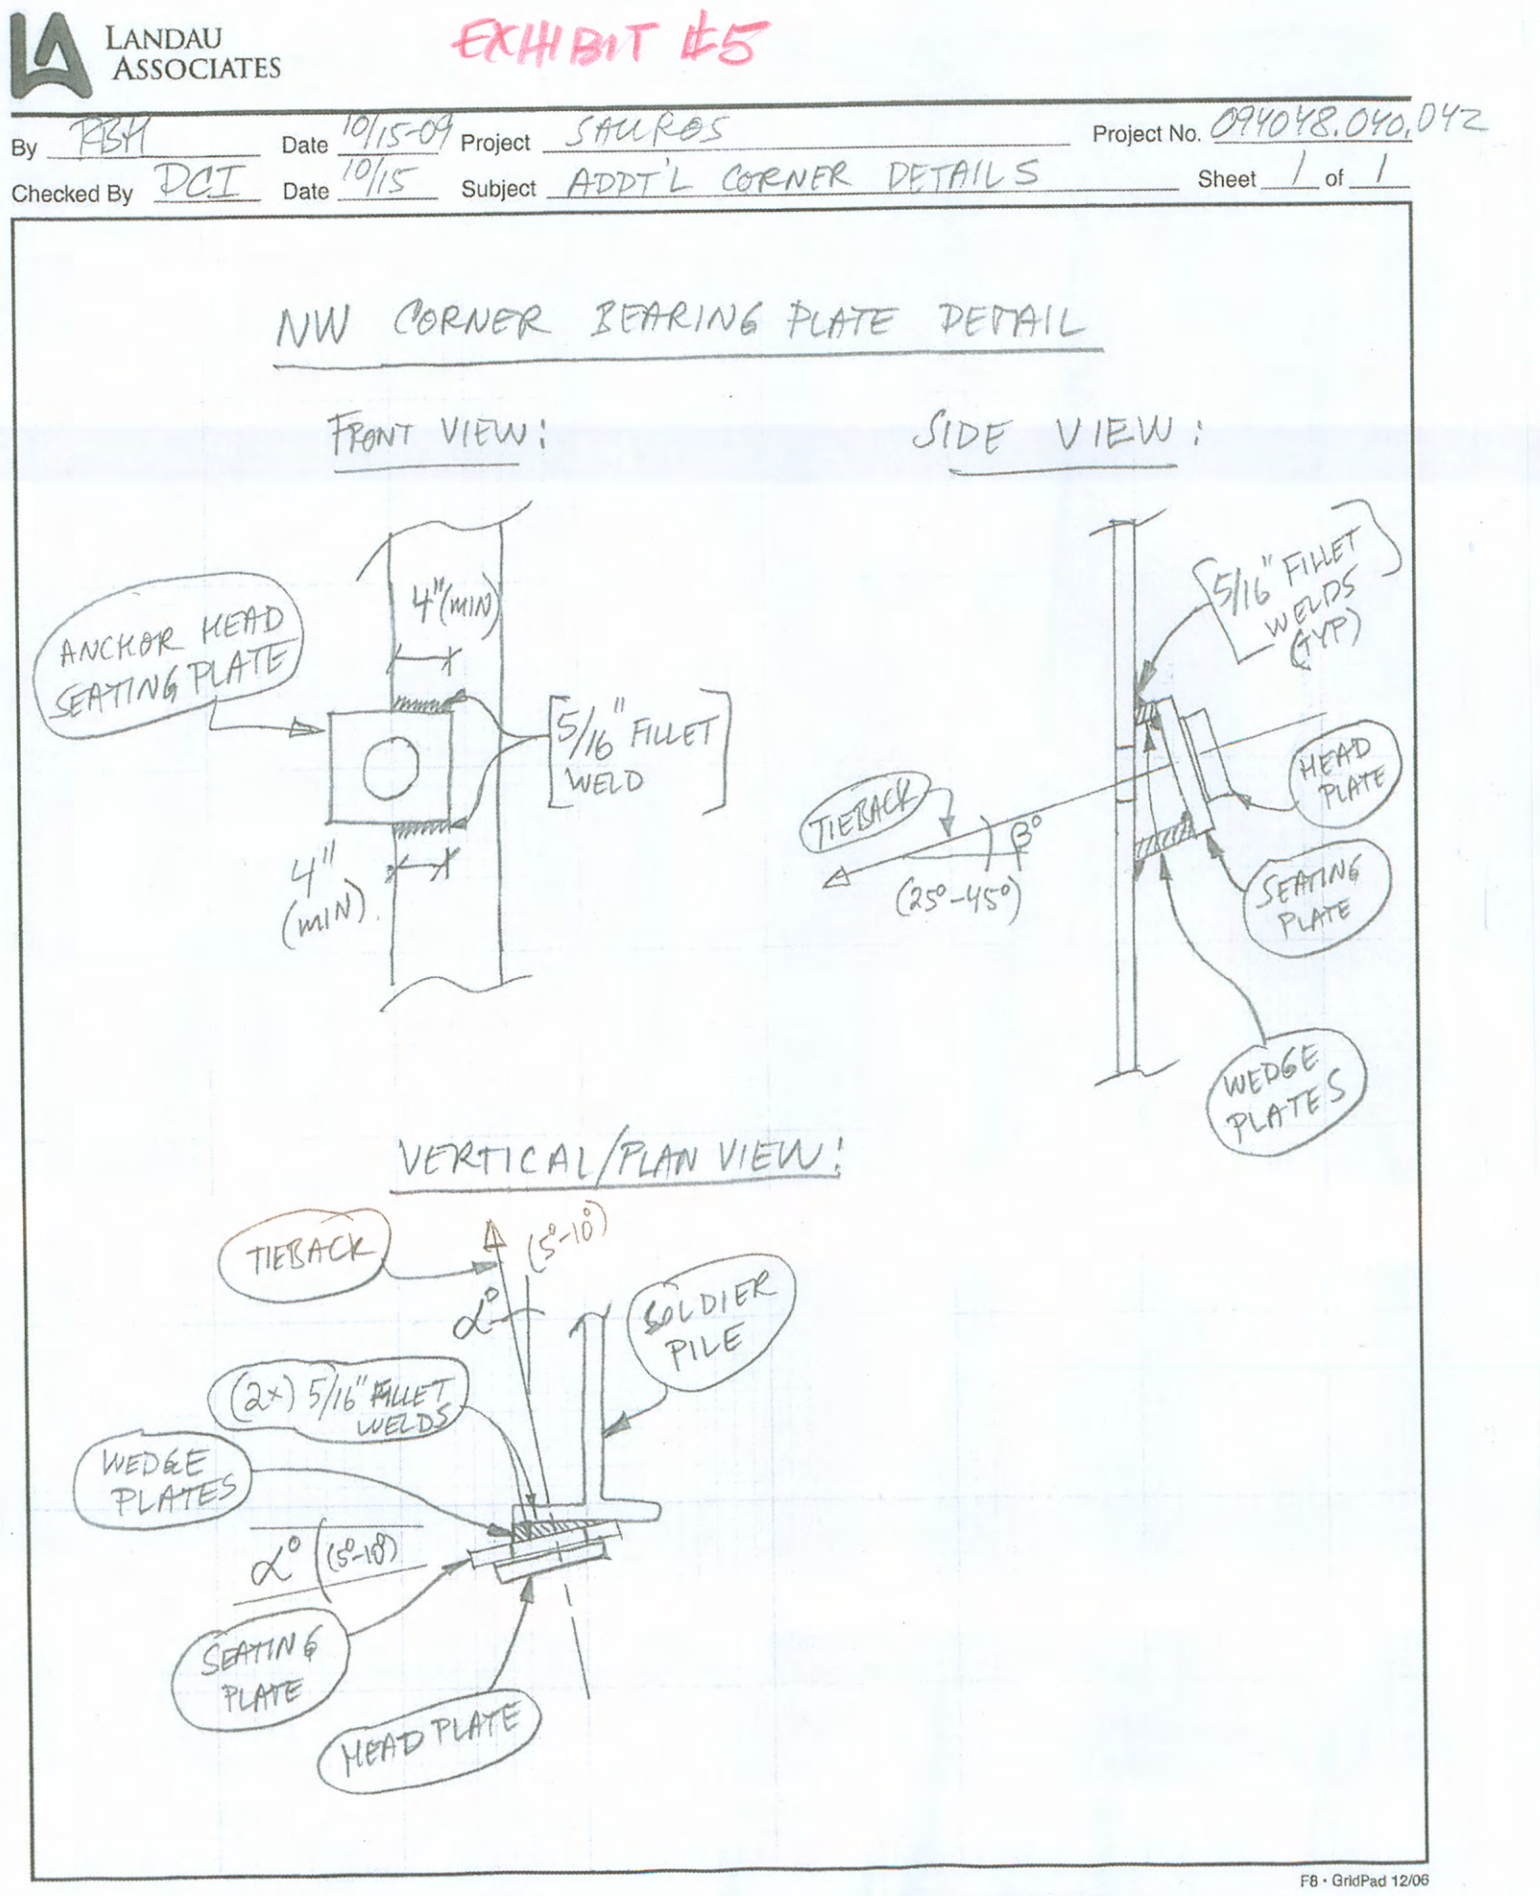 LANDAU
ASSOCIATES
EXHIBIT #5
By RBH Date 10/15-09 Project SAUROS Project No. 094048.040.042
Checked By DCI Date 10/15 Subject ADDT'L CORNER DETAILS Sheet 1 of 1
NW CORNER BEARING PLATE DETAIL
FRONT VIEW:
SIDE VIEW:
4" (MIN)
ANCHOR HEAD
SEATING PLATE
5/16" FILLET
WELD
4"
(MIN)
5/16" FILLET
WELDS
(TYP)
HEAD
PLATE
TIEBACK
β°
(25°-45°)
SEATING
PLATE
WEDGE
PLATES
VERTICAL/PLAN VIEW:
TIEBACK
(5°-10°)
α°
SOLDIER
PILE
(2x) 5/16" FILLET
WELDS
WEDGE
PLATES
α° (5°-10°)
SEATING
PLATE
HEAD PLATE
F8 • GridPad 12/06